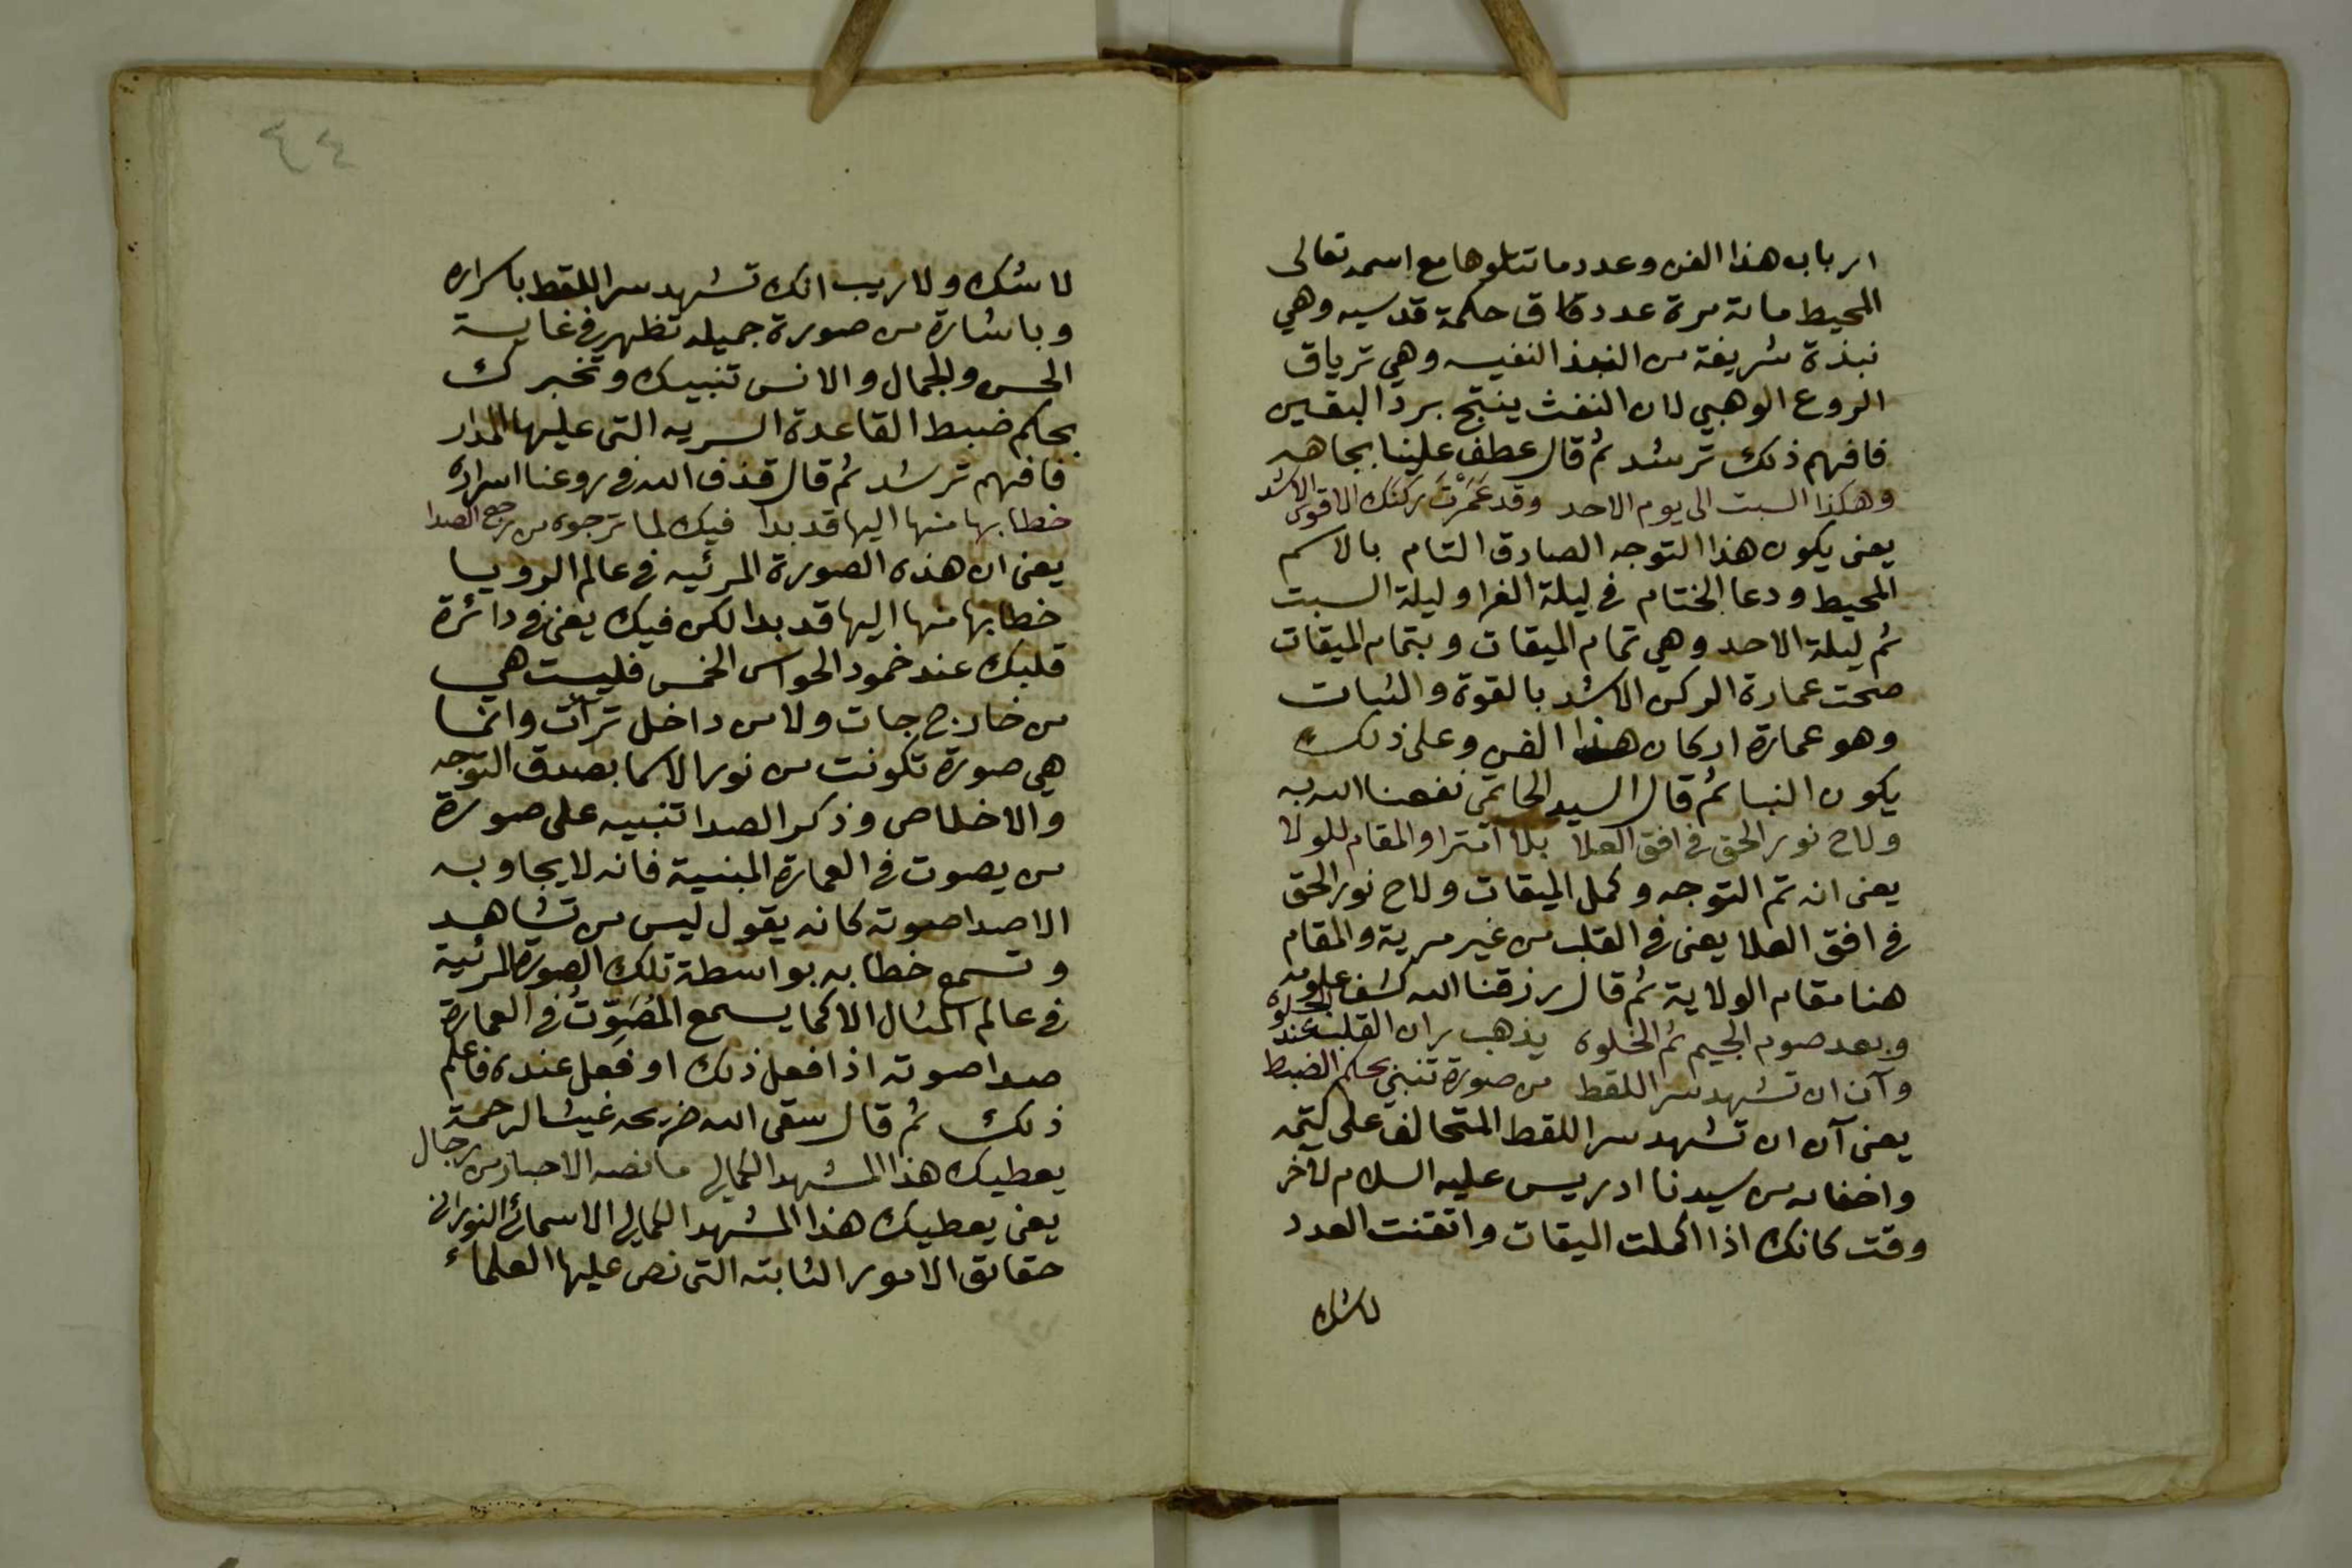 ارباب هذا الفن وعدد ما تتلوها مع اسمه تعالى
المحيط ماىة مرة عدد قاف حكمة قدسيه وهي
نبذة شريفة من النبذ النفيسه وهي ترياق
الروع الوهبي لان النفث ينتج برد اليقين
فافهم ذلك ترشد ثم قال عطف علينا بجاهه
وهكذا السبت الى يوم الاحد وقد عَمَرْتَ ركنك الاقوى الاشد
يعنى يكون هذا التوجه الصادق التام بالاسم
المحيط ودعا الختام فى ليلة الغرا وليلة السبت
ثم ليلة الاحد وهي تمام الميقات وبتمام الميقات
صحت عمارة الركن الاشد بالقوة والثبات
وهو عمارة اركان هذا الفن وعلى ذلك
يكون النبا ثم قال السيد الحاتمى نفعنا الله به
ولاح نور الحق فى افق العلا بلا امترا والمقام للولا
يعنى انه تم التوجه وكمل الميقات ولاح نور الحق
فى افق العلا يعنى فى القلب من غير مرية والمقام
هنا مقام الولاية ثم قال رزقنا الله كشف علومه
وبعد صوم الجيم ثم الخلوه يذهب ران القلب عند الجلوه
وآن ان تشهد سر اللقط من صورة تنبي بحكم الضبط
يعنى آن ان تشهد سر اللقط المتحالف على كتمه
واخفاىه من سيدنا ادريس عليه السلام لآخر
وقت كانك اذا اكملت اليقات واتقنت العدد
لاشك
لا شك ولا ريب انك تشهد سر اللقط باسراره
وباشارة من صورة جميله تظهر فى غاية
الحسن والجمال والانس تنبيك وتخبرك
بحكم ضبط القاعدة السريه التى عليها المدار
فافهم ترشد ثم قال قذف الله فى روعنا اسراره
خطابها منها اليها قد بدا فيك لما ترجوه من رجع الصدا
يعنى ان هذه الصورة المرئيه فى عالم الرويا
خطابها منها اليها قد بدا لكن فيك يعنى فى دائرة
قلبك عند خمود الحواس الخمس فليست هي
من خارج جات ولا من داخل تراآت وانما
هي صورة تكونت من نور الاسما بصدق التوجه
والاخلاص وذكر الصدا تنبيه على صورة
من يصوت فى العمارة المبنية فانه لا يجاوبه
الا صدا صوته كانه يقول ليس من تشاهد
وتسمع خطابه بواسطة تلك الصورة المرئية
فى عالم المثال الا كما يسمع المُصَوِّتُ فى العمارة
صدا صوته اذا فعل ذلك او فعل عنده فاعلم
ذلك ثم قال سقى الله ضريحه غيث الرحمة
يعطيك هذا المشهد الكمالى ما نصه الاحبار من رجال
يعنى يعطيك هذا المشهد الكمالى الاسمائى النورانى
حقايق الامور الثابته التى نص عليها العلماء